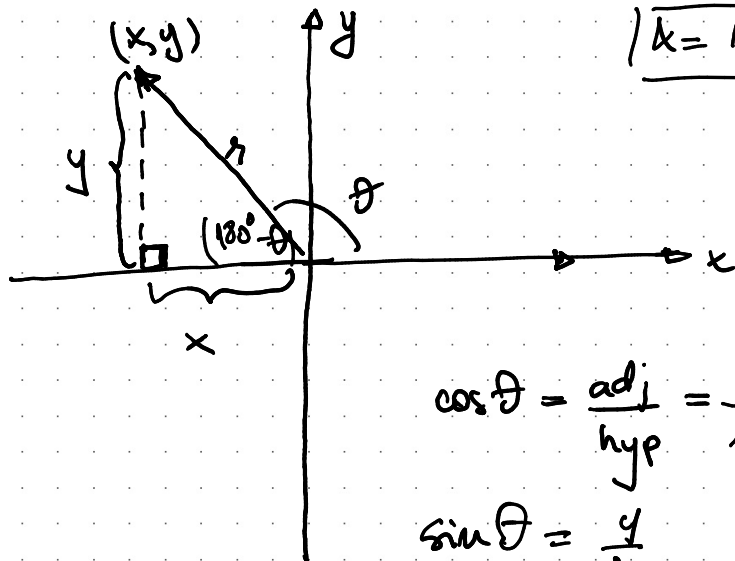 (x,y)
y
A =
y
r
θ
(180°-θ)
x
x
cosθ = adj/hyp =
sinθ = y